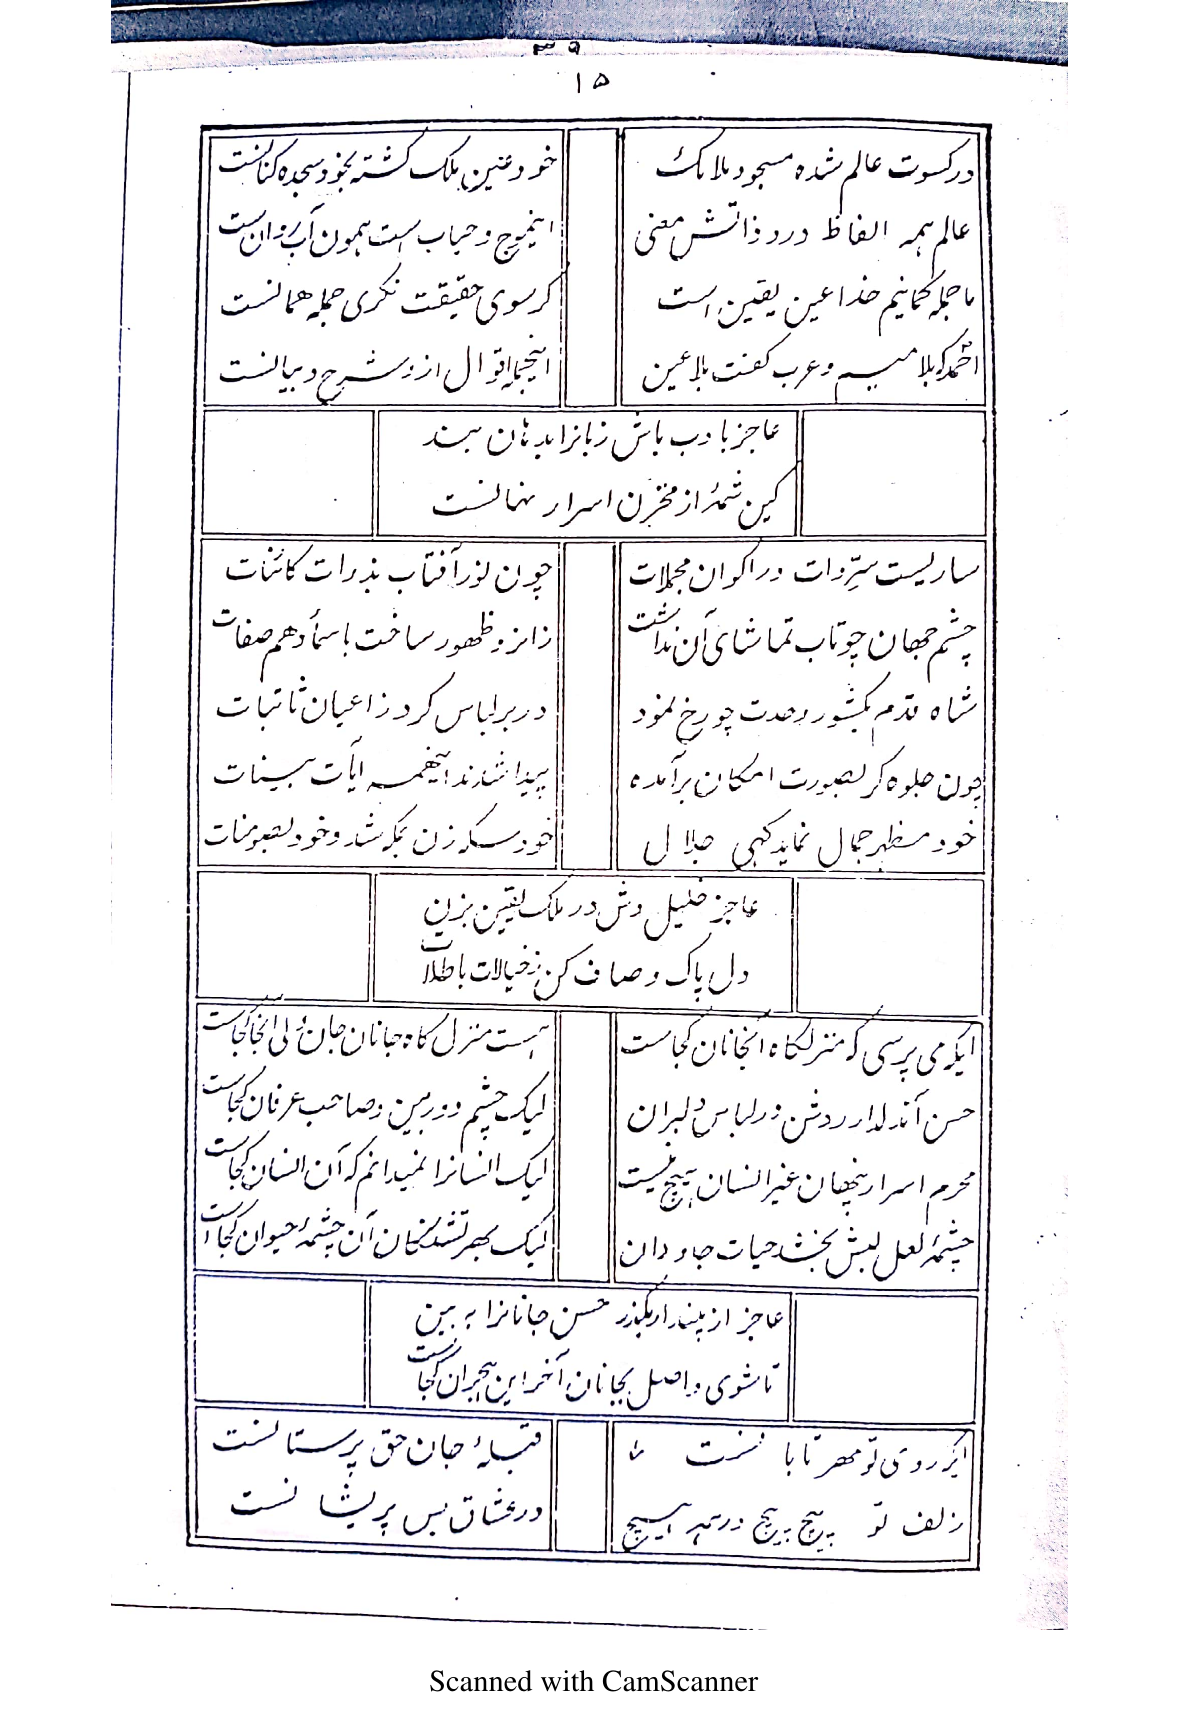 ۳۹
۱۵
در کسوت عالم شده مسجود ملائک
خود عین ملک گشته بخود سجده کنانست
عالم همه الفاظ درو ذاتش معنی
اینموج و حباب است همون آب روان است
ما جمله گمانیم خدا عین یقین است
گر سوی حقیقت نگری جمله همانست
احمد که بلا میم و عرب گفت بلا عین
اینجمله اقوال ازو شرح و بیانست
عاجز با دب باش زبانرا بدهان بند
کین شمهٔ از مخزن اسرار نهانست
ساریست سرّ ذات در اکوان مجملات
چون نور آفتاب بذرات کائنات
چشم جهان چو تاب تماشای آن نداشت
زانرو ظهور ساخت باسماء و هم صفات
شاه قدم بکشور وحدت چو رخ نمود
در بر لباس کرد ز اعیان ثابتات
چون جلوه گر بصورت امکان برآمده
پیدا شدند اینهمه آیات بینات
خود مظهر جمال نماید گهی جلال
خود سکه زن بمکه شد و خود بسومنات
عاجز خلیل وش در ملک یقین بزن
دل پاک و صاف کن ز خیالات باطلات
ایکه می پرسی که منزلگاه آنجانان کجاست
هست منزل گاه جانان جان ولی آنجا کجاست
حسن آن دلدار روشن در لباس دلبران
لیک چشم دوربین و صاحب عرفان کجاست
محرم اسرار پنهان غیر انسان هیچ نیست
لیک انسانرا نمیدانم که آن انسان کجاست
چشمهٔ لعل لبش بخشد حیات جاودان
لیک بهر تشنگان آن چشمهٔ حیوان کجا است
عاجز از پندار بگذر حسن جانانرا به بین
تا شوی واصل بجانان آخر این هجران کجاست
ایکه روی تو مهر تابانست
قبلهٔ جان حق پرستانست
زلف تو پیچ پیچ در
در عشاق بس پریشانست
Scanned with CamScanner